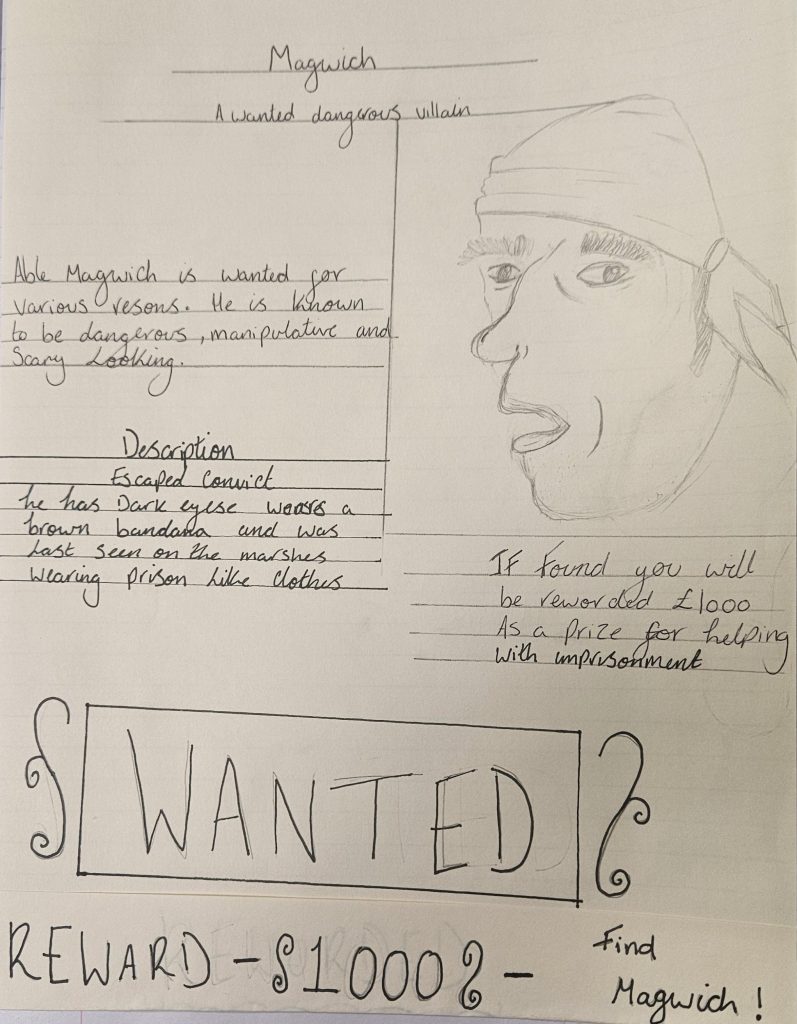 Magwich
A wanted dangerous villain
Able Magwich is wanted for
various resons. He is known
to be dangerous, manipulative and
Scary Looking.
Description
Escaped Convict
he has Dark eyese wears a
brown bandana and was
Last seen on the marshes
Wearing prison Like clothes
IF Found you will
be reworded £1000
As a prize for helping
with imprisonment
WANTED
REWARD - $1000 -
Find
Magwich!